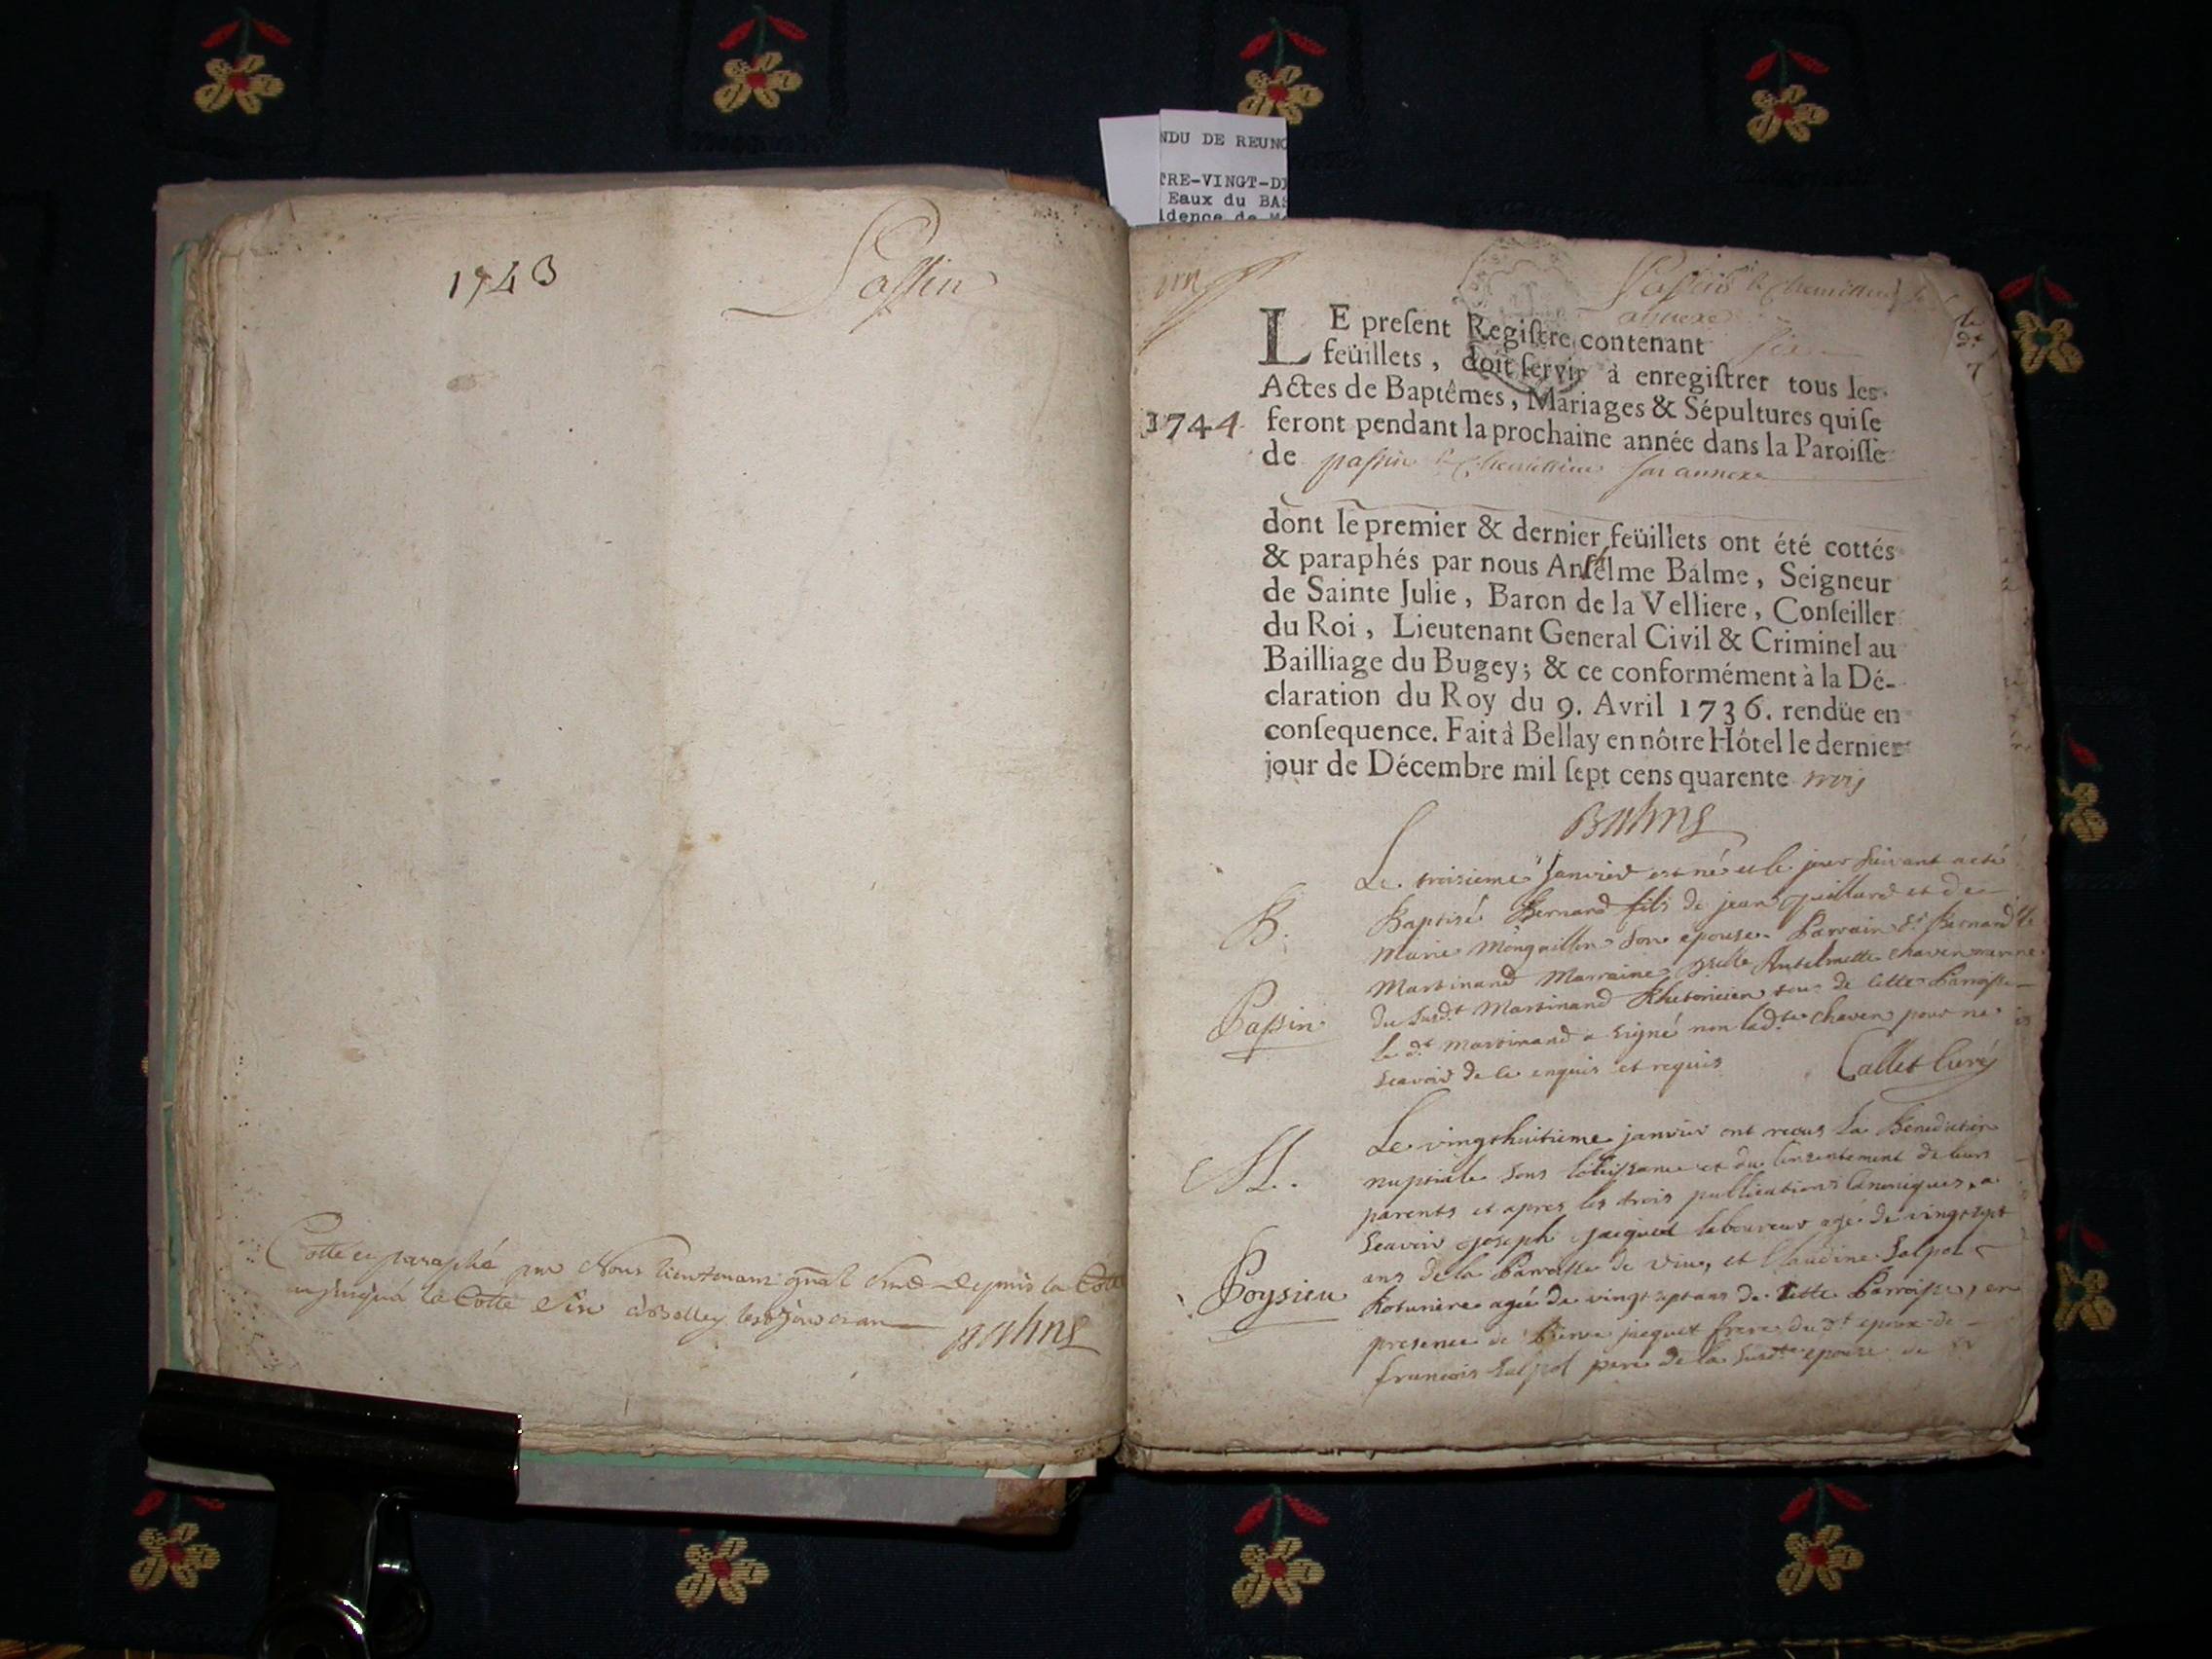 NDU DE REUNO
TRE-VINGT-DI
Eaux du BAS
idence de M
1743
Passin
Cotte et paraphé par Nous lieutenant gnal depuis la Cotte
jusqu'a la Cotte Six à Belley les jour et an
Balme
un
Passin & Chemillieu
annexe
LE preſent Regiſtre contenant Six
feüillets, doit ſervir à enregiſtrer tous les
Actes de Baptêmes, Mariages & Sépultures qui ſe
1744 feront pendant la prochaine année dans la Paroiſſe
de passin & Chemillieu son annexe
dont le premier & dernier feüillets ont été cottés
& paraphés par nous Anſelme Balme, Seigneur
de Sainte Julie, Baron de la Velliere, Conſeiller
du Roi, Lieutenant General Civil & Criminel au
Bailliage du Bugey; & ce conformément à la Dé-
claration du Roy du 9. Avril 1736. rendüe en
conſequence. Fait à Bellay en nôtre Hôtel le dernier
jour de Décembre mil ſept cens quarente trois
Balme
Le troisieme Janvier est né et le jour suivant a eté
B. Baptisé Bernard fils de jean Guillard et de
marie Mongaillon son epouse. Parrain Sr Bernard
Martinand Marraine Antelmette Chaven
Passin du susdt Martinand Rhetoricien tous de cette Parroisse
le dt martinand a signé non ladte Chaven pour ne
scavoir de ce enquis et requis Callet Curé
Le vingthuitieme janvier ont recus La Benediction
M. nuptiale sous l'obeissance et du consentement de leurs
parents et apres les trois publications Canoniques, a
scavoir joseph jacquet laboureur agé de vingtsept
ans de la Parroisse de Vieu, et Claudine Salpol
Poysieu Roturiere agée de vingtsept ans de Cette Parroisse, en
presence de Pierre jacquet frere du dt epoux de
francois Salpol pere de la susdte epouse de